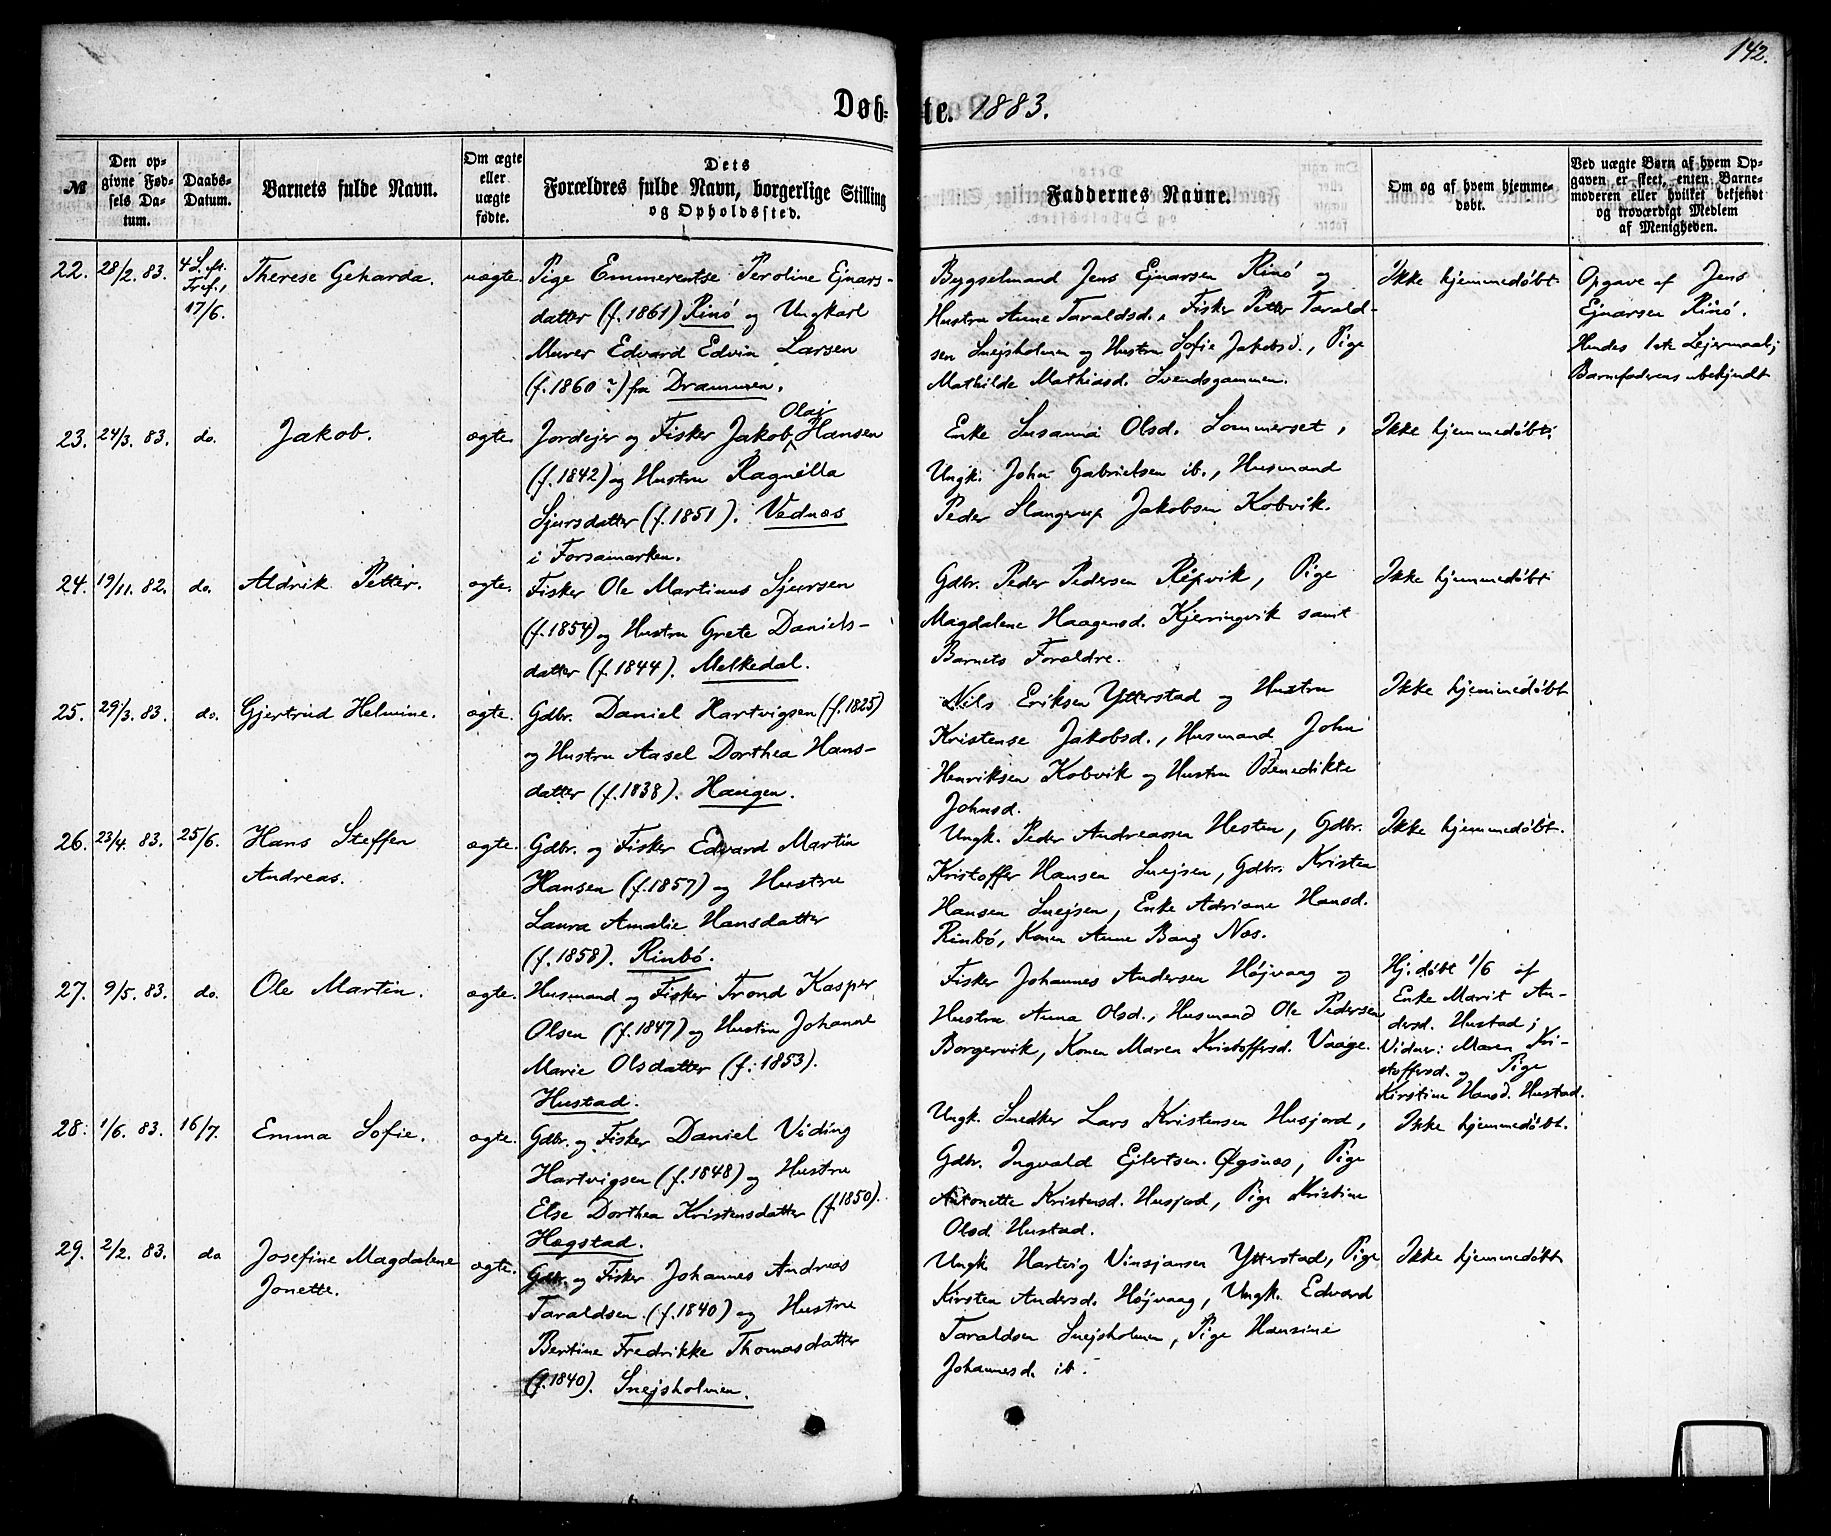 142.
Døb-
te. 1883.
№
Den op-
givne Fød-
sels Da-
tum.
Daabs-
Datum.
Barnets fulde Navn.
Om ægte
eller
uægte
fødte.
Dets
Forældres fulde Navn, borgerlige Stilling
og Opholdssted.
Faddernes Navne.
Om og af hvem hjemme-
døbt.
Ved uægte Børn af hvem Op-
gaven er skeet, enten Barne-
moderen eller hvilket bekjendt
og troværdigt Medlem
af Menigheden.
22. 28/2. 83.
4 S. eft.
Tref.,
17/6.
Therese Geharda.
uægte.
Pige Emmerentse Peroline Ejnars-
datter (f. 1861) Rinø og Ungkarl
Murer Edvard Edvin Larsen
(f. 1860 ?) fra Drammen.
Bygselmand Jens Ejnarsen Rinø og
Hustru Anne Taraldsd., Fisker Petter Tarald-
sen Snejsholmen og Hustru Sofie Jakobsd., Pige
Mathilde Mathiasd. Svendsgammen.
Ikke hjemmedøbt
Opgave af Jens
Ejnarsen Rinø.
Hendes 1ste Lejermaal;
Barnefaderens ubekjendt
23. 24/3. 83. do.
Jakob.
ægte.
Jordejer og Fisker Jakob Olai Hansen
(f. 1842) og Hustru Ragnilla
Sjursdatter (f. 1851). Vednæs
i Forsamarken.
Enke Susanna Olsd. Sommerset,
Ungk. John Gabrielsen ib., Husmand
Peder Slangerup Jakobsen Kobvik.
Ikke hjemmedøbt.
24. 19/11. 82. do.
Aldrik Petter.
ægte.
Fisker Ole Martinus Sjursen
(f. 1854) og Hustru Grete Daniels-
datter (f. 1844). Melkedal.
Gdbr. Peder Pedersen Repvik, Pige
Magdalene Haagensd. Kjerringvik samt
Barnets Forældre.
Ikke hjemmedøbt
25. 29/3. 83. do.
Gjertrud Helmine.
ægte.
Gdbr. Daniel Hartvigsen (f. 1825)
og Hustru Aasel Dorthea Hans-
datter (f. 1838). Haugen.
Nils Eriksen Ytterstad og Hustru
Kristense Jakobsd., Husmand John
Henriksen Kobvik og Hustru Benedikte
Johnsd.
Ikke hjemmedøbt
26. 23/4. 83. 25/6.
Hans Steffen
Andreas.
ægte.
Gdbr. og Fisker Edvard Martin
Hansen (f. 1857) og Hustru
Laura Amalie Hansdatter
(f. 1858). Rinbø.
Ungk. Peder Andreassen Hesten, Gdbr.
Kristoffer Hansen Snejsen, Gdbr. Kristen
Hansen Snejsen, Enke Adriane Hansd.
Rinbø, Konen Anne Bang Næs.
Ikke hjemmedøbt.
27. 9/5. 83. do.
Ole Martin.
ægte.
Husmand og Fisker Trond Kasper
Olsen (f. 1847) og Hustru Johanne
Marie Olsdatter (f. 1853).
Hustad.
Fisker Johannes Andersen Højvaag og
Hustru Anna Olsd., Husmand Ole Pedersen
Borgervik, Konen Maren Kristoffersd. Vaage.
Hj. døbt 1/6 af
Enke Marit An-
dersd. Hustad;
Vidner: Maren Kri-
stoffersd. og Pige
Kirstine Hansd. Hustad.
28. 1/6. 83. 16/7.
Emma Sofie.
ægte.
Gdbr. og Fisker Daniel Viding
Hartvigsen (f. 1848) og Hustru
Else Dorthea Kristensdatter (f. 1850).
Hægstad.
Ungk. Snedker Lars Kristensen Husjord,
Gdbr. Ingvald Ejlertsen Øgsnæs, Pige
Antonette Kristensd. Husjord, Pige Kristine
Olsd Hustad.
Ikke hjemmedøbt.
29. 2/2. 83. do
Josefine Magdalene
Jonette.
ægte.
Gdbr. og Fisker Johannes Andreas
Taraldsen (f. 1840) og Hustru
Bertine Fredrikke Thomasdatter
(f. 1840). Snejsholmen.
Ungk Hartvig Vinsjansen Ytterstad, Pige
Kirsten Andersd. Højvaag, Ungk. Edvard
Taraldsen Snejsholmen, Pige Hansine
Johannesd. ib.
Ikke hjemmedøbt